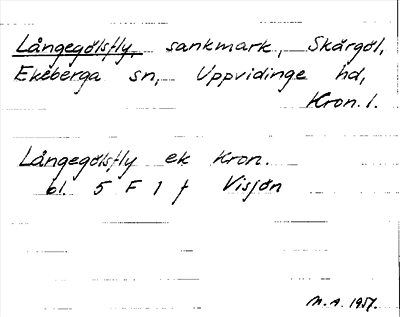 Långegölsfly, sankmark, Skärgöl,
Ekeberga sn, Uppvidinge hd,
Kron. l.
Långegölsfly ek Kron.
bl. 5 F 1 f Visjön
M. A. 1957.